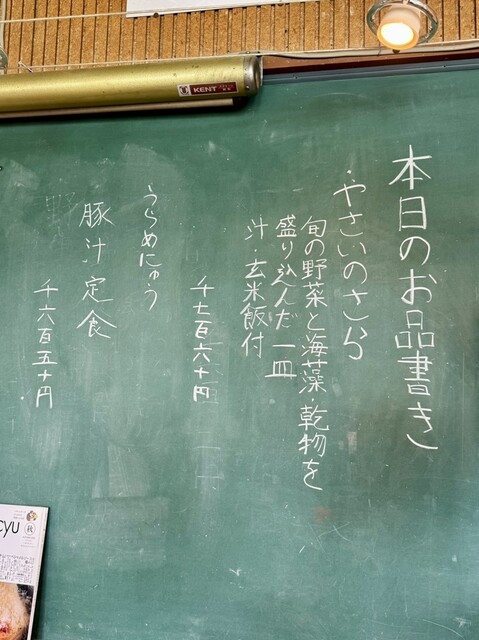 本日のお品書き
・やさいのさら
旬の野菜と海藻・乾物を
盛り込んだ一皿
汁・玄米飯付
千七百六十円
うらめにゅう
豚汁定食
千六百五十円
KENT
cyu
秋